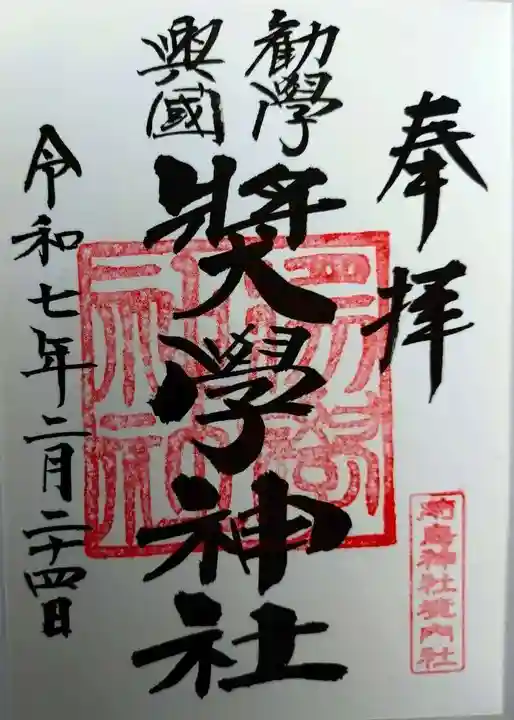 奉拝
勸學
興國
奬學神社
令和七年二月二十四日
神社境内社